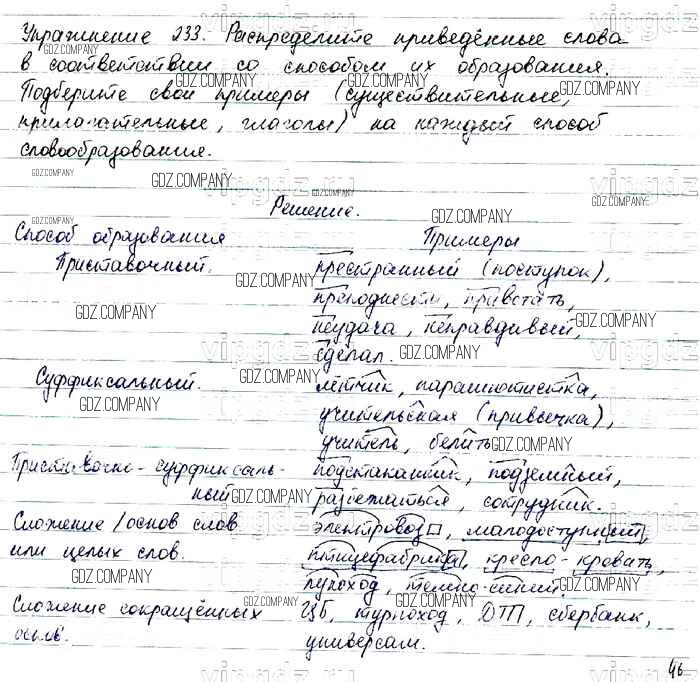 Упражнение 233. Распределите приведённые слова
в соответствии со способом их образования.
Подберите свои примеры (существительные,
прилагательные, глаголы) на каждый способ
словообразования.
Решение.
Способ образования Примеры
Приставочный. престранный (поступок),
преподнести, привстать,
неудача, неправдивый,
сделал.
Суффиксальный. лётчик, парашютистка,
учительская (привычка),
учитель, белить
Приставочно-суффиксаль- подстаканник, подземный,
ный разбежаться, сотрудник.
Сложение/основ слов электровоз, малодоступный,
или целых слов. птицефабрика, кресло-кровать,
луноход, темно-синий.
Сложение сокращённых ЦБ, турпоход, ДТП, сбербанк,
основ. универсам.
46
GDZ.COMPANY
vipgdz.ru